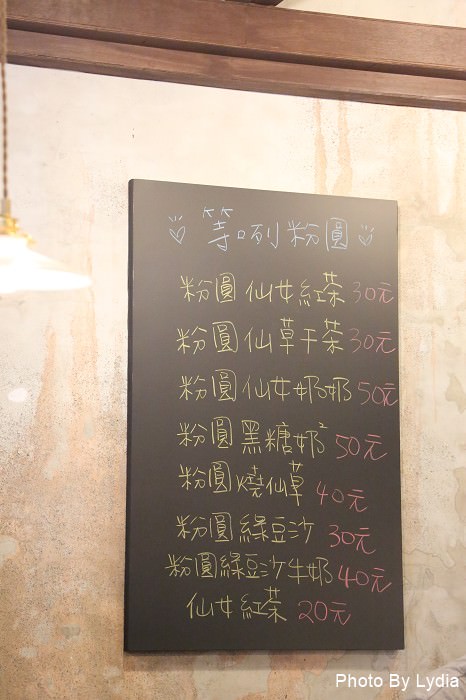 等咧粉圓
粉圓仙女紅茶 30元
粉圓仙草干茶 30元
粉圓仙女奶奶 50元
粉圓黑糖奶² 50元
粉圓燒仙草 40元
粉圓綠豆沙 30元
粉圓綠豆沙牛奶 40元
仙女紅茶 20元
Photo By Lydia